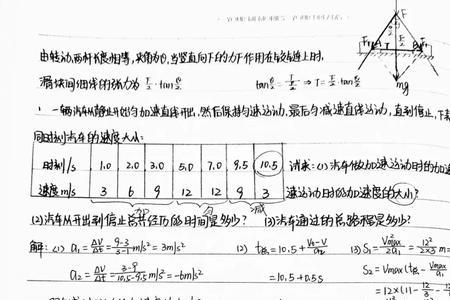 由转动,两杆长度相等,夹角为θ,当竖直向下的力F作用在铰链上时,
滑块间细线的张力为 F/2·tanθ/2
tanθ/2 = T/(F/2) ⇒ T = F/2·tanθ/2
F
mg
一辆汽车从静止开始匀加速直线开出,然后保持匀速运动,最后匀减速直线运动,直到停止,下表
同时刻汽车的速度大小:
时刻/s 1.0 2.0 3.0 5.0 7.0 9.5 10.5
速度m/s 3 6 9 12 12 9 3
加 匀 减
求:(1)汽车做加速运动时的加
速运动时的加速度的大小?
(2)汽车从开出到停止总共经历的时间是多少? (3)汽车通过的总路程是多少?
解:(1) a₁=ΔV/Δt=(9-3)/(3-1)m/s²=3m/s²
(2) t总=10.5+(V₀-V)/a₂
(3) S₁=V²max/2a₁=12²/2×3 m=
a₂=ΔV/Δt=(3-9)/(10.5-9.5)m/s²=-6m/s²
=10.5+0.5s
S₂=Vmax(t总-Vmax/a₁
=12×(11-12/3-